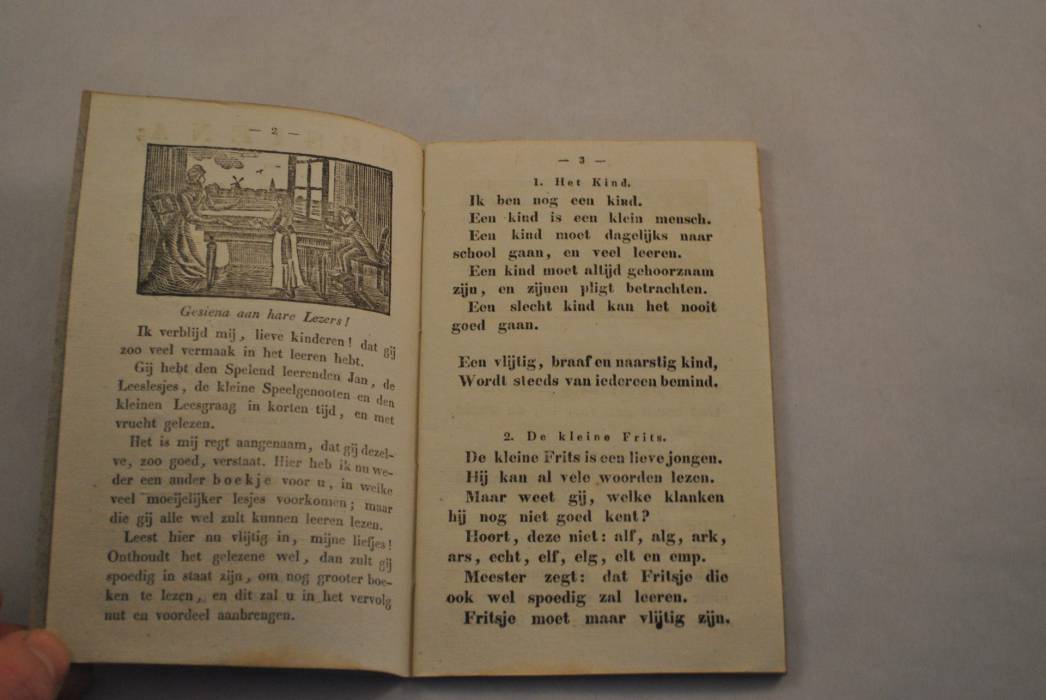 — 2 —
Gesiena aan hare Lezers!
Ik verblijd mij, lieve kinderen! dat gij
zoo veel vermaak in het leeren hebt.
Gij hebt den Spelend leerenden Jan, de
Leeslesjes, de kleine Speelgenooten en den
kleinen Leesgraag in korten tijd, en met
vrucht gelezen.
Het is mij regt aangenaam, dat gij dezel-
ve, zoo goed, verstaat. Hier heb ik nu we-
der een ander boekje voor u, in welke
veel moeijelijker lesjes voorkomen; maar
die gij alle wel zult kunnen leeren lezen.
Leest hier nu vlijtig in, mijne liefjes!
Onthoudt het gelezene wel, dan zult gij
spoedig in staat zijn, om nog grooter boe-
ken te lezen, en dit zal u in het vervolg
nut en voordeel aanbrengen.
— 3 —
1. Het Kind.
Ik ben nog een kind.
Een kind is een klein mensch.
Een kind moet dagelijks naar
school gaan, en veel leeren.
Een kind moet altijd gehoorzaam
zijn, en zijnen pligt betrachten.
Een slecht kind kan het nooit
goed gaan.
Een vlijtig, braaf en naarstig kind,
Wordt steeds van iedereen bemind.
2. De kleine Frits.
De kleine Frits is een lieve jongen.
Hij kan al vele woorden lezen.
Maar weet gij, welke klanken
hij nog niet goed kent?
Hoort, deze niet: alf, alg, ark,
ars, echt, elf, elg, elt en emp.
Meester zegt: dat Fritsje die
ook wel spoedig zal leeren.
Fritsje moet maar vlijtig zijn.